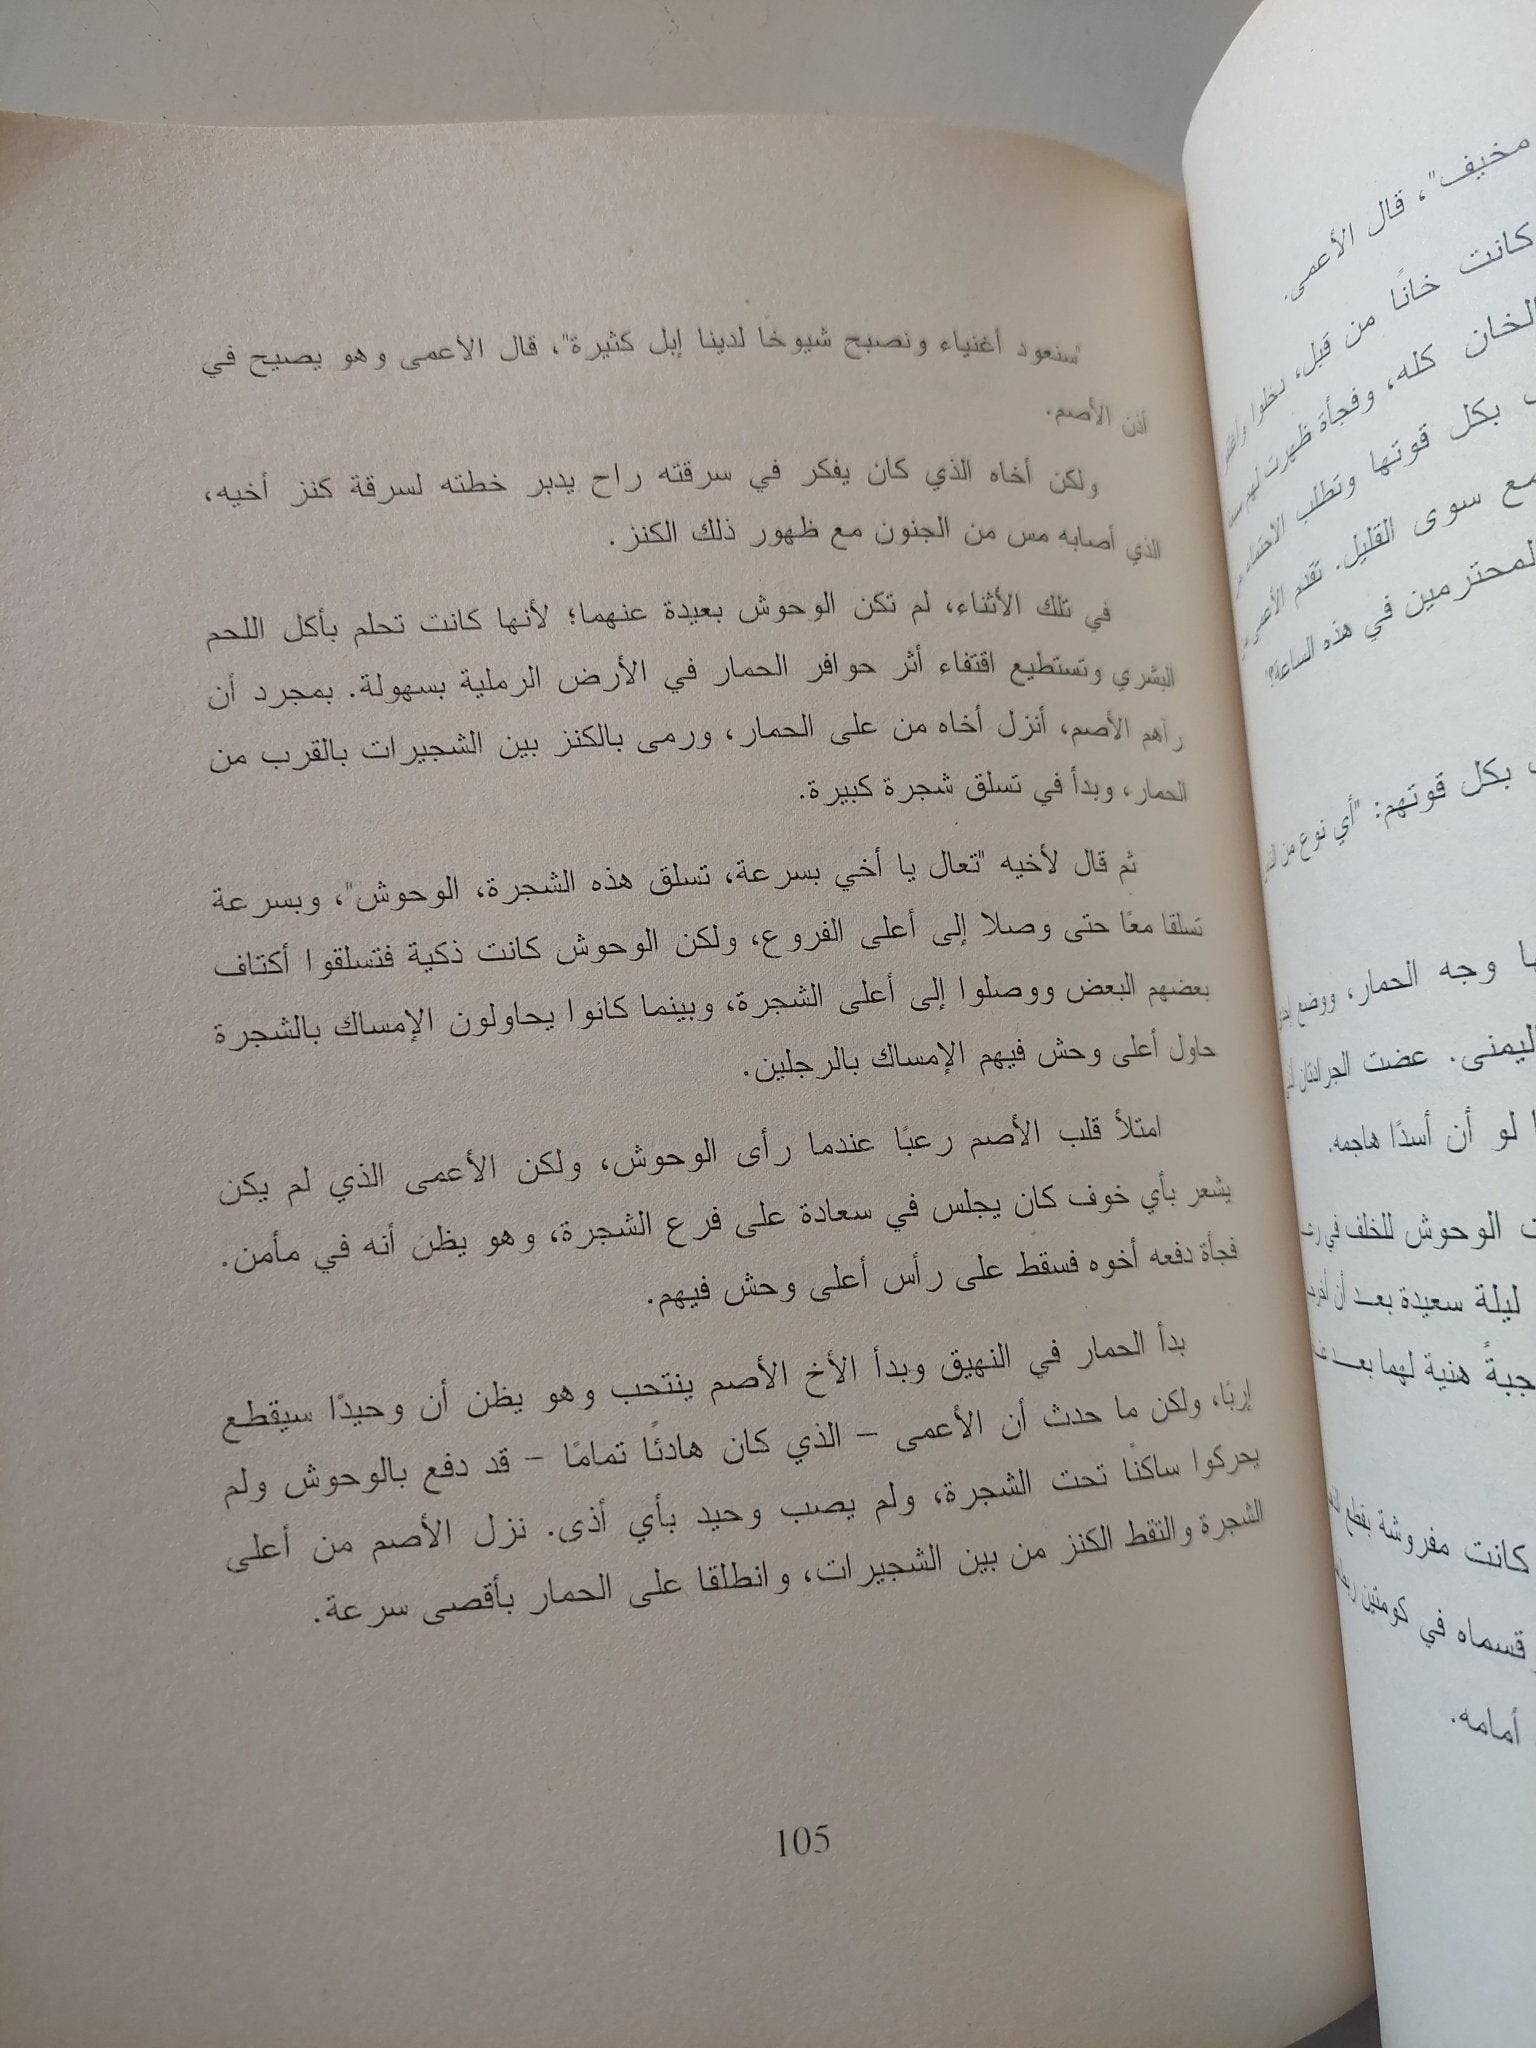 مخيف"، قال الأعمى.
كانت خانًا من قبل، دخلوا
الخان كله، وفجأة ظهرت لهم
بكل قوتها وتطلب الاحتماء من
مع سوى القليل. تقدم الأعمى
المحترمين في هذه الساعة؟"
بكل قوتهم: "أي نوع من
وجه الحمار، ووضع
اليمنى. عضت الجرادتان
لو أن أسدًا هاجمه.
الوحوش للخلف في
ليلة سعيدة بعد أن
هنية لهما بعد
كانت مفروشة بقطع
قسماه في كومتين
أمامه.
"سنعود أغنياء ونصبح شيوخًا لدينا إبل كثيرة"، قال الأعمى وهو يصيح في
أذن الأصم.
ولكن أخاه الذي كان يفكر في سرقته راح يدبر خطته لسرقة كنز أخيه،
الذي أصابه مس من الجنون مع ظهور ذلك الكنز.
في تلك الأثناء، لم تكن الوحوش بعيدة عنهما؛ لأنها كانت تحلم بأكل اللحم
البشري وتستطيع اقتفاء أثر حوافر الحمار في الأرض الرملية بسهولة. بمجرد أن
رآهم الأصم، أنزل أخاه من على الحمار، ورمى بالكنز بين الشجيرات بالقرب من
الحمار، وبدأ في تسلق شجرة كبيرة.
ثم قال لأخيه "تعال يا أخي بسرعة، تسلق هذه الشجرة، الوحوش"، وبسرعة
تسلقا معًا حتى وصلا إلى أعلى الفروع، ولكن الوحوش كانت ذكية فتسلقوا أكتاف
بعضهم البعض ووصلوا إلى أعلى الشجرة، وبينما كانوا يحاولون الإمساك بالشجرة
حاول أعلى وحش فيهم الإمساك بالرجلين.
امتلأ قلب الأصم رعبًا عندما رأى الوحوش، ولكن الأعمى الذي لم يكن
يشعر بأي خوف كان يجلس في سعادة على فرع الشجرة، وهو يظن أنه في مأمن.
فجأة دفعه أخوه فسقط على رأس أعلى وحش فيهم.
بدأ الحمار في النهيق وبدأ الأخ الأصم ينتحب وهو يظن أن وحيدًا سيقطع
إربًا، ولكن ما حدث أن الأعمى – الذي كان هادئًا تمامًا – قد دفع بالوحوش ولم
يحركوا ساكنًا تحت الشجرة، ولم يصب وحيد بأي أذى. نزل الأصم من أعلى
الشجرة والتقط الكنز من بين الشجيرات، وانطلقا على الحمار بأقصى سرعة.
105